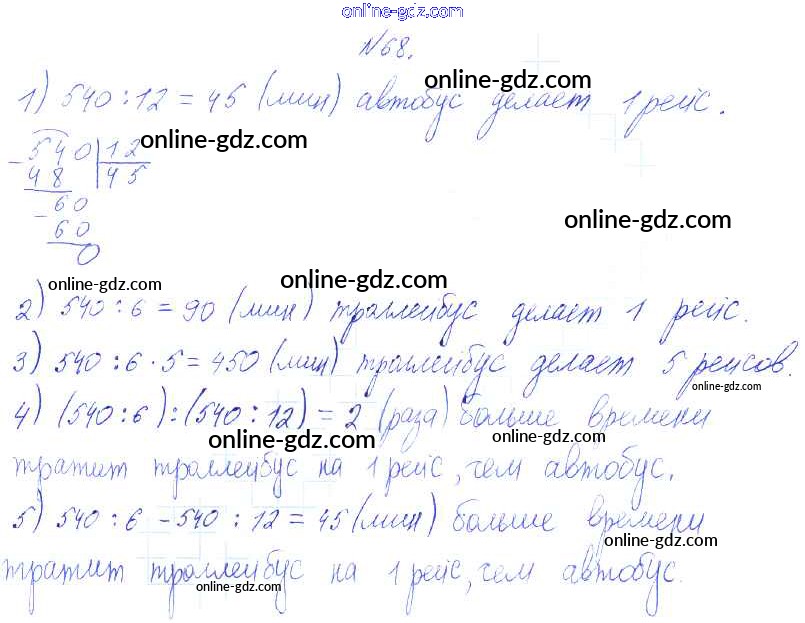 online-gdz.com
№68.
online-gdz.com
1) 540 : 12 = 45 (мин) автобус делает 1 рейс.
online-gdz.com
online-gdz.com
- 540 | 12
48 | 45
- 60
60
0
online-gdz.com
online-gdz.com
online-gdz.com
2) 540 : 6 = 90 (мин) троллейбус делает 1 рейс.
3) 540 : 6 · 5 = 450 (мин) троллейбус делает 5 рейсов.
online-gdz.com
4) (540 : 6) : (540 : 12) = 2 (раза) больше времени
online-gdz.com
online-gdz.com
тратит троллейбус на 1 рейс, чем автобус.
online-gdz.com
5) 540 : 6 - 540 : 12 = 45 (мин) больше времени
online-gdz.com
тратит троллейбус на 1 рейс, чем автобус.
online-gdz.com